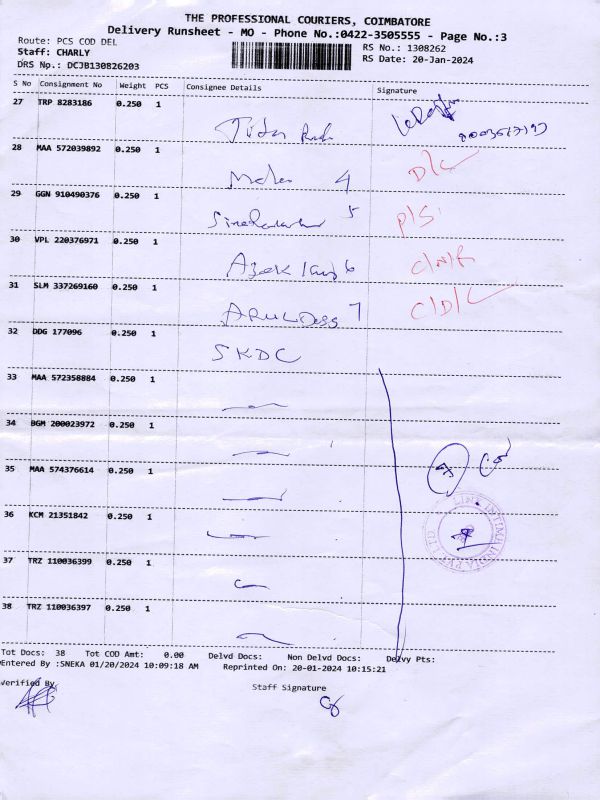 THE PROFESSIONAL COURIERS, COIMBATORE
Delivery Runsheet - MO - Phone No.:0422-3505555 - Page No.:3
Route: PCS COD DEL
RS No.: 1308262
Staff: CHARLY
RS Date: 20-Jan-2024
DRS Np.: DCJB130826203
S No Consignment No Weight PCS Consignee Details Signature
27 TRP 8283186 0.250 1
28 MAA 572039892 0.250 1
D/C
4
29 GGN 910490376 0.250 1
P/S
5
30 VPL 220376971 0.250 1
C/N/R
6
31 SLM 337269160 0.250 1
C/D/C
ARULDoss 7
32 DDG 177096 0.250 1
SKDC
33 MAA 572358884 0.250 1
34 BGM 200023972 0.250 1
35 MAA 574376614 0.250 1
36 KCM 21351842 0.250 1
37 TRZ 110036399 0.250 1
38 TRZ 110036397 0.250 1
Tot Docs: 38 Tot COD Amt: 0.00 Delvd Docs: Non Delvd Docs: Delvy Pts:
Entered By :SNEKA 01/20/2024 10:09:18 AM Reprinted On: 20-01-2024 10:15:21
Verified By
Staff Signature